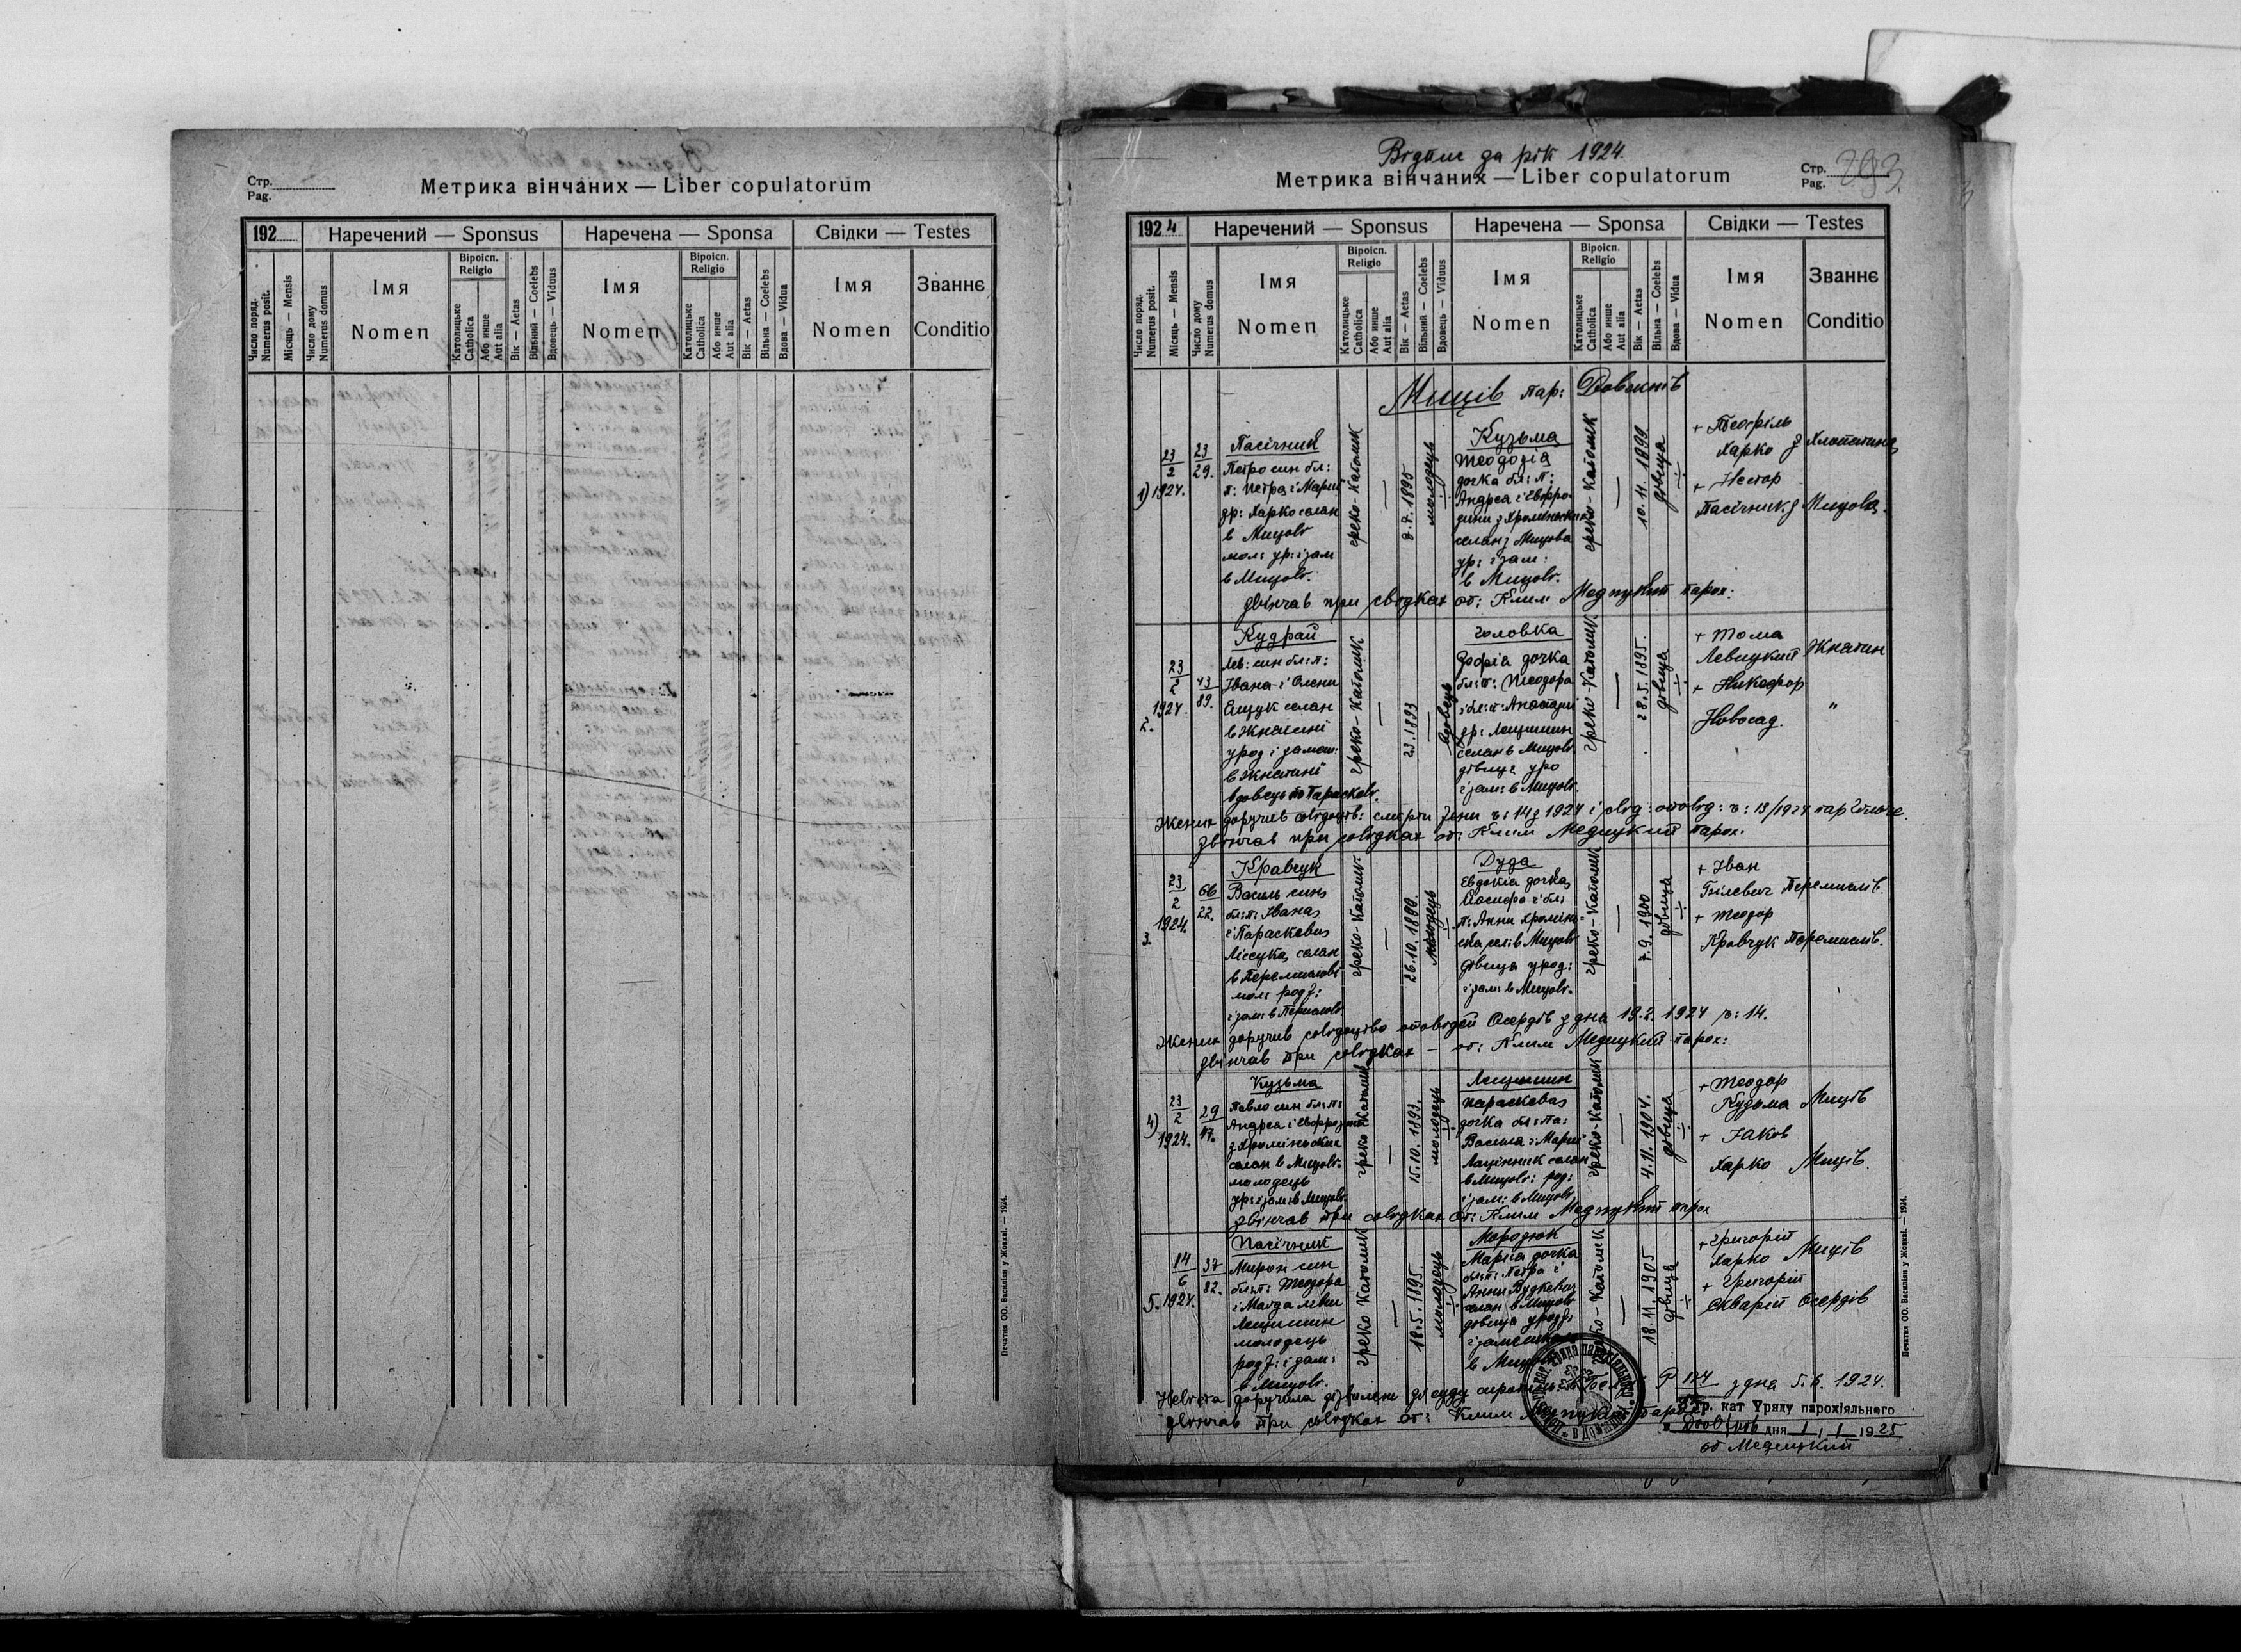 Стр.
Pag.
Метрика вінчаних — Liber copulatorum
192
Наречений — Sponsus
Наречена — Sponsa
Свідки — Testes
Число поряд.
Numerus posit.
Місяць — Mensis
Число дому
Numerus domus
Імя
Nomen
Віроісп.
Religio
Католицьке
Catholica
Або инше
Aut alia
Вік — Aetas
Вільний — Coelebs
Вдовець — Viduus
Імя
Nomen
Віроісп.
Religio
Католицьке
Catholica
Або инше
Aut alia
Вік — Aetas
Вільна — Coelebs
Вдова — Vidua
Імя
Nomen
Званнє
Conditio
Печатня ОО. Василіян у Жовкві. — 1924.
Відпис за рік 1924.
Метрика вінчаних — Liber copulatorum
Стр.
Pag.
1924
Наречений — Sponsus
Наречена — Sponsa
Свідки — Testes
Число поряд.
Numerus posit.
Місяць — Mensis
Число дому
Numerus domus
Імя
Nomen
Віроісп.
Religio
Католицьке
Catholica
Або инше
Aut alia
Вік — Aetas
Вільний — Coelebs
Вдовець — Viduus
Імя
Nomen
Віроісп.
Religio
Католицьке
Catholica
Або инше
Aut alia
Вік — Aetas
Вільна — Coelebs
Вдова — Vidua
Імя
Nomen
Званнє
Conditio
Миців пар: Довжнів
1)
23
2
1924.
23
29.
Пасічник
Петро син бл:
п: Петра і Марії
др: Харко селян
в Мицові
мол: ур: і зам
в Мицові.
греко-католик
8.7.1895
молодець
Кузьма
Теодозія
дочка бл: п:
Андрея і Евфро
зини з Хроміньских
селян з Мицова
ур: і зам:
в Мицові.
греко-католик
10.11.1899
дівиця
+ Теофіль
Харко з Хлопятина
+ Нестор
Пасічник з Мицова.
звінчав при свідках от: Клим Медицкий парох:
2.
23
2
1924.
43
89.
Кудрай
Лев: син бл: п:
Івана і Олени
Ящук селян
в Жнятині
урод і замеш:
в Жнятині
вдовець по Параскеві.
греко-католик
23.1893
вдовець
Головка
Зофія дочка
бл: п: Теодора
і бл: п: Анастазії
др: Лещишин
селян в Мицові
дівиця уро
і зам: в Мицові.
греко-католик
28.5.1895.
дівиця
+ Тома
Левицкий Жнятин
+ Никифор
Новосад. "
Жених доручив свідоцтв: смерти жени ч: 14 з 1924 і
звінчав при свідках от: Клим Медицкий парох.
3.
23
2
1924.
66
22.
Кравчук
Василь син
бл: п: Івана
і Параскева
селян
в Перемислові
мол: род ж:
греко-католик
26.10.1890.
молодець
Дуда
Евдокія дочка
Йосифа і бл:
п: Анни Хромінь
ска сел: в Мицові
дівиця урод:
і зам: в Мицові.
греко-католик
7.9.1900
дівиця
+ Іван
Гілевич Перемислів.
+ Теодор
Кравчук Перемислів.
Жених доручив свідоцтво оповідей Осердів з дня 19.2.1924 ч: 14.
звінчав при свідках — от: Клим Медицкий парох:
4)
23
2
1924.
29
17.
Кузьма
Павло син бл: п:
Андрея і Евфрозини
з Хроміньских
селян в Мицові.
молодець
ур: і зам: в Мицові
греко католик
15.10.1893.
молодець
Лещишин
Параскева
дочка бл: па:
Василя і Марії
селян
в Мицові: род:
і зам: в Мицові
греко-католик
4.11.1904.
дівиця
+ Теодор
Кузьма Миців
+ Яков
Харко Миців.
звінчав при свідках от: Клим Медицкий парох
5.
14
6
1924.
37
82.
Пасічник
Мирон син
бл: п: Теодора
і Магдалени
Лещишин
молодець
род ж: і зам:
в Мицові.
греко католик
18.5.1895.
молодець
Мородюк
Марія дочка
бл: п: Петра і
Анни Будкевич
селян в Мицові
дівиця урод ж:
і замешкала
в
18.11.1905
дівиця
+ Григорій
Харко Миців
+ Григорій
Скварій Осердів
доручила дозволене
з дня 5.6.1924.
звінчав при свідках от: Клим
Гр. кат Уряду парохіяльного
дня 1 / 1 1925
от Медицкий
Печатня ОО. Василіян у Жовкві. — 1924.